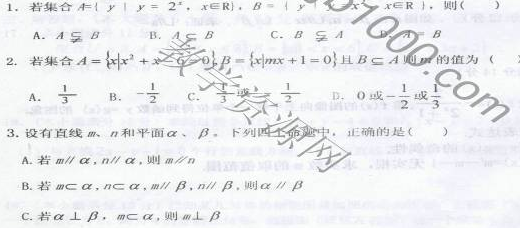 1. 若集合 A={ y | y = 2ˣ, x∈R}, B = { y x², x∈R }, 则( )
A. A ⫋ B B. A B C. B ⫋ A D. A = B
2. 若集合 A={x|x² + x 6 = 0}, B={x|mx+1=0}且 B⊆A 则 m 的值为 (
A. 1/3 B. -1/2 C. 1/3 或 1/2 D. 0或-1/2或1/3
3. 设有直线 m、n和平面α、β。下列四个命题中, 正确的是( )
A. 若 m∥α,n∥α,则 m∥n
B. 若 m⊂α,n⊂α,m∥β,n∥β,则α∥β
C. 若α⊥β, m⊂α,则 m⊥β
数学资源网
1000.com